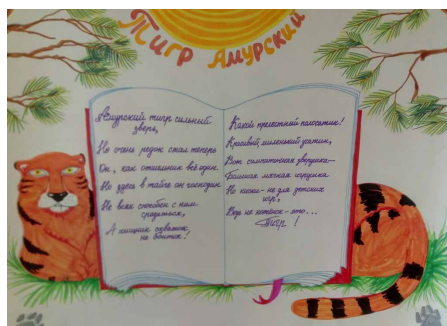 Тигр Амурский
Амурский тигр сильный
зверь,
Но очень редок стал теперь
Он, как отшельник всё один
Но здесь в тайге он господин
Не всяк способен с ним
сразиться,
А хищник схваток
не боится!
Какой прелестный полосатик!
Красивый, миленький усатик,
Вот симпатичная зверушка–
Большая мягкая игрушка
Но киски - не для детских
игр,
Ведь не котёнок - это...
Тигр!